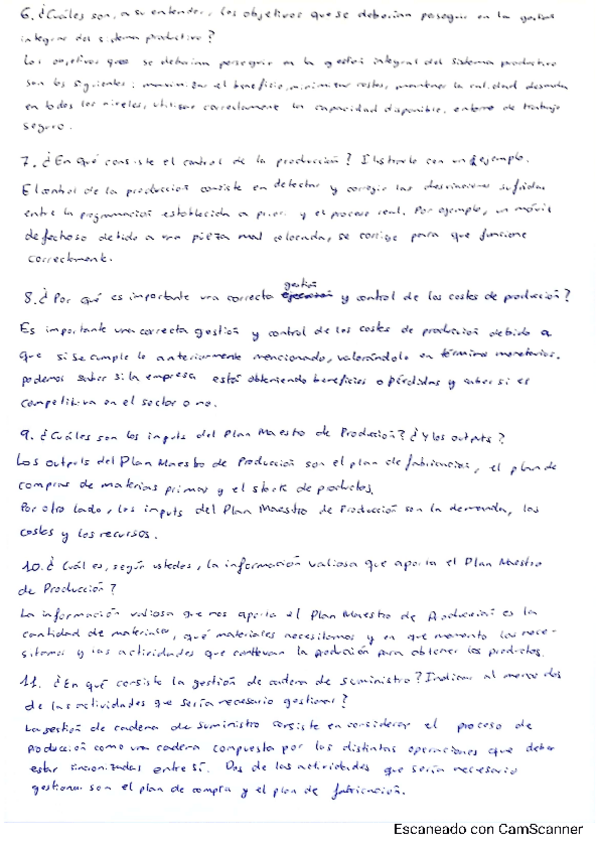 6. ¿Cuáles son, a su entender, los objetivos que se deberían perseguir en la gestión
integral del sistema productivo?
Los objetivos que se deberían perseguir en la gestión integral del sistema productivo
son los siguientes: maximizar el beneficio, minimizar costes, mantener la calidad deseada
en todos los niveles, utilizar correctamente la capacidad disponible, entorno de trabajo
seguro.
7. ¿En qué consiste el control de la producción? Ilustrarlo con un ejemplo.
El control de la producción consiste en detectar y corregir las desviaciones sufridas
entre la programación establecida a priori y el proceso real. Por ejemplo, un móvil
defectuoso debido a una pieza mal colocada, se corrige para que funcione
correctamente.
gestión
8. ¿Por qué es importante una correcta y control de los costes de producción?
Es importante una correcta gestión y control de los costes de producción debido a
que si se cumple lo anteriormente mencionado, valorándolo en término monetarios,
podemos saber si la empresa está obteniendo beneficios o pérdidas y saber si es
competitiva en el sector o no.
9. ¿Cuáles son los inputs del Plan Maestro de Producción? ¿Y los outputs?
Los outputs del Plan Maestro de Producción son el plan de fabricación, el plan de
compras de materias primas y el stock de productos.
Por otro lado, los inputs del Plan Maestro de Producción son la demanda, los
costes y los recursos.
10. ¿Cuál es, según ustedes, la información valiosa que aporta el Plan Maestro
de Producción?
La información valiosa que nos aporta el Plan Maestro de Producción es la
cantidad de materiales, qué materiales necesitamos y en que momento los nece-
sitamos y las actividades que conllevan la producción para obtener los productos.
11. ¿En qué consiste la gestión de cadena de suministro? Indicar al menos dos
de las actividades que sería necesario gestionar?
La gestión de cadena de suministro consiste en considerar el proceso de
producción como una cadena compuesta por las distintas operaciones que deben
estar sincronizadas entre sí. Dos de las actividades que sería necesario
gestionar son el plan de compra y el plan de fabricación.
Escaneado con CamScanner